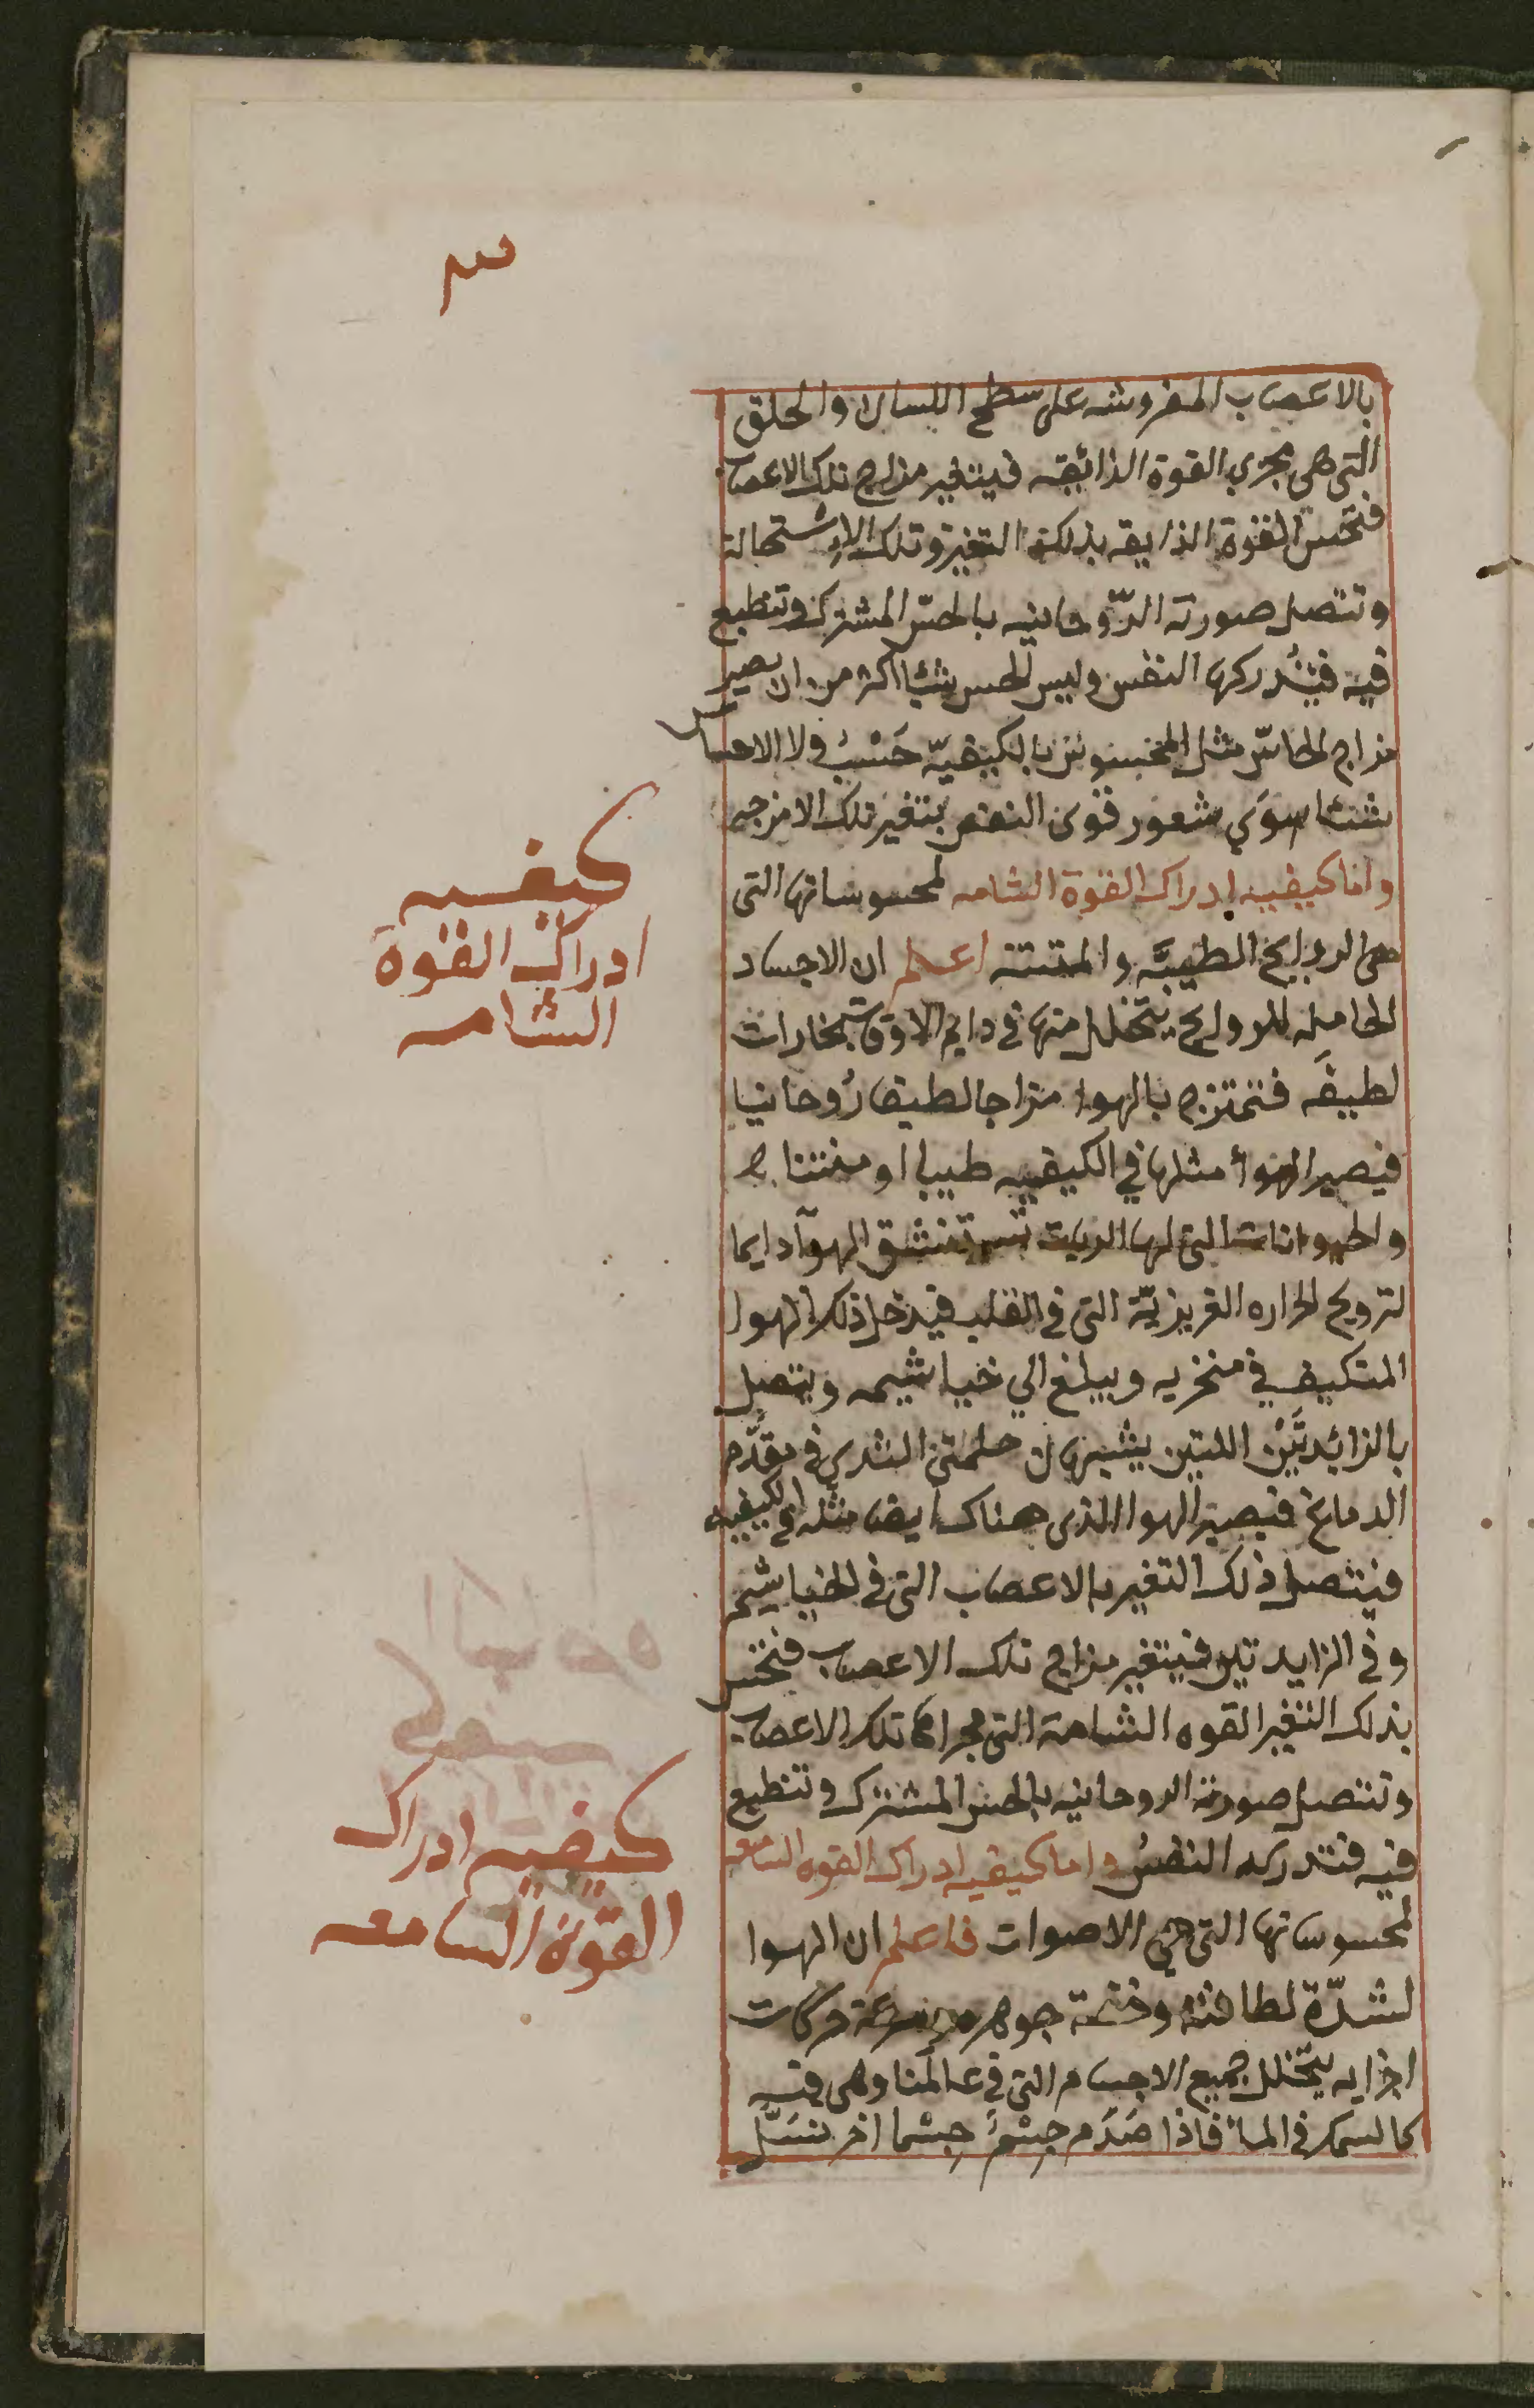 ٣
بالاعصاب المفروشه على سطح اللسان والحلق
التي هي مجري القوة الذائقه فيتغير مزاج تلك الاعصاب
فتحس القوة الذايقه بذلك التغير وتلك الاستحالة
وتتصل صورته الرّوحانيه بالحسّ المشترك وتنطبع
فيه فتُدركها النفس وليس الحس شيئا اكثر من ان يصير
مزاج الحاسّ مثل المحسوس بالكيفيّه حَسْبُ ولا الاحساس
شئا سوَي شعور قوى النفس بتغير تلك الامزجه
واما كيفيه ادراك القوة الشامه لمحسوساتها التى
هى الروايح الطيبَّه والمنتنه اعلم ان الاجساد
الحامله للروايح يتحلل منها في دايم الاوقات بخارات
لطيفَه فتمتزج بالهوا مزاجا لطيفا رُوحانيا
فيصير الهوأ مثلها في الكيفيه طيبا او منتنا
والحيوانات التي لها الريات تستنشق الهوآ دايما
لترويح الحراره الغريزيّة التى في القلب فيدخل ذلك الهوا
المتكيف في منخريه ويبلغ الي خياشيمه ويتصل
بالزائدتَيْن اللتين يشبهان حلمتى الثدي في مقدَّم
الدماغ فيصير الهوا الذى هناك ايضا مثله في الكيفيه
فيتصل ذلك التغير بالاعصاب التى في الخياشيم
وفى الزايدتين فيتغير مزاج تلك الاعصاب فتحس
بذلك التغير القوه الشامة التى مجراها تلك الاعصاب
وتتصل صورته الروحانيه بالحس المشترك وتنطبع
فيه فتدركه النفسُ واما كيفيه ادراك القوه السامعه
لمحسوساتها التى هي الاصوات فاعلم ان الهوا
لشدّة لطافته وخفة جوهره وسرعة حركات
اجزايه يتخلل جميع الاجسام التي في عالمنا وهى فيه
كالسمك في الماء فاذا صَدَم جِسْمُ جسما اخر نسَلَّ
كيفيه
ادراك القوة
الشامه
كيفيه ادراك
القوة السامعه